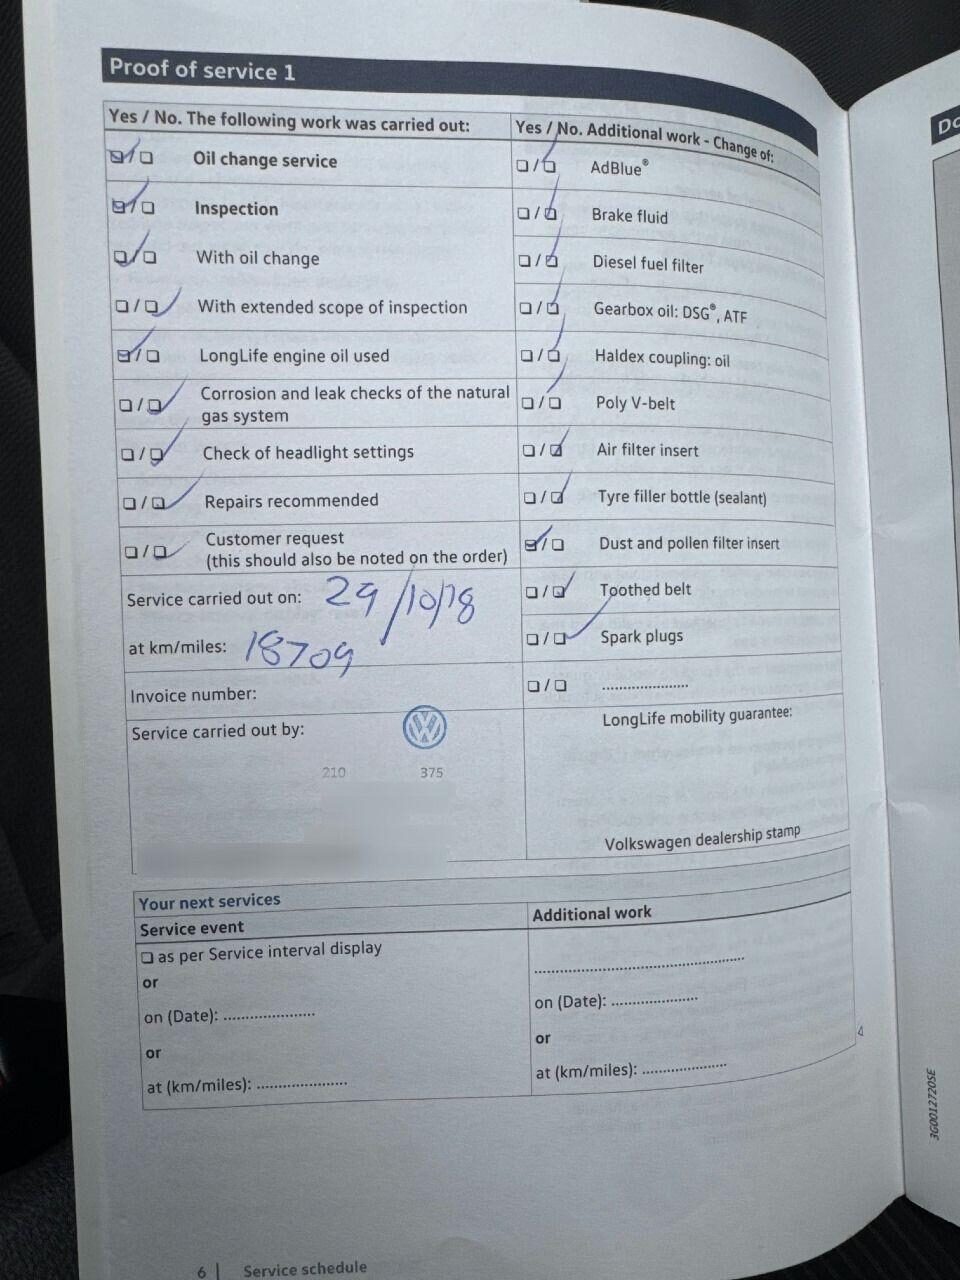 Proof of service 1
Yes / No. The following work was carried out:
☑ / ☐ Oil change service
☑ / ☐ Inspection
☑ / ☐ With oil change
☐ / ☑ With extended scope of inspection
☑ / ☐ LongLife engine oil used
☐ / ☑ Corrosion and leak checks of the natural
gas system
☐ / ☑ Check of headlight settings
☐ / ☑ Repairs recommended
☐ / ☑ Customer request
(this should also be noted on the order)
Service carried out on: 29/10/18
at km/miles: 18709
Invoice number:
Service carried out by:
210 375
Yes / No. Additional work - Change of:
☐ / ☑ AdBlue®
☐ / ☑ Brake fluid
☐ / ☑ Diesel fuel filter
☐ / ☑ Gearbox oil: DSG®, ATF
☐ / ☑ Haldex coupling: oil
☐ / ☑ Poly V-belt
☐ / ☑ Air filter insert
☐ / ☑ Tyre filler bottle (sealant)
☑ / ☐ Dust and pollen filter insert
☐ / ☑ Toothed belt
☐ / ☑ Spark plugs
☐ / ☐ ....................
LongLife mobility guarantee:
Volkswagen dealership stamp
Your next services
Service event
☐ as per Service interval display
or
on (Date): .....................
or
at (km/miles): .....................
Additional work
..................................................
on (Date): ....................
or
at (km/miles): ....................
6 | Service schedule
3G0012720SE